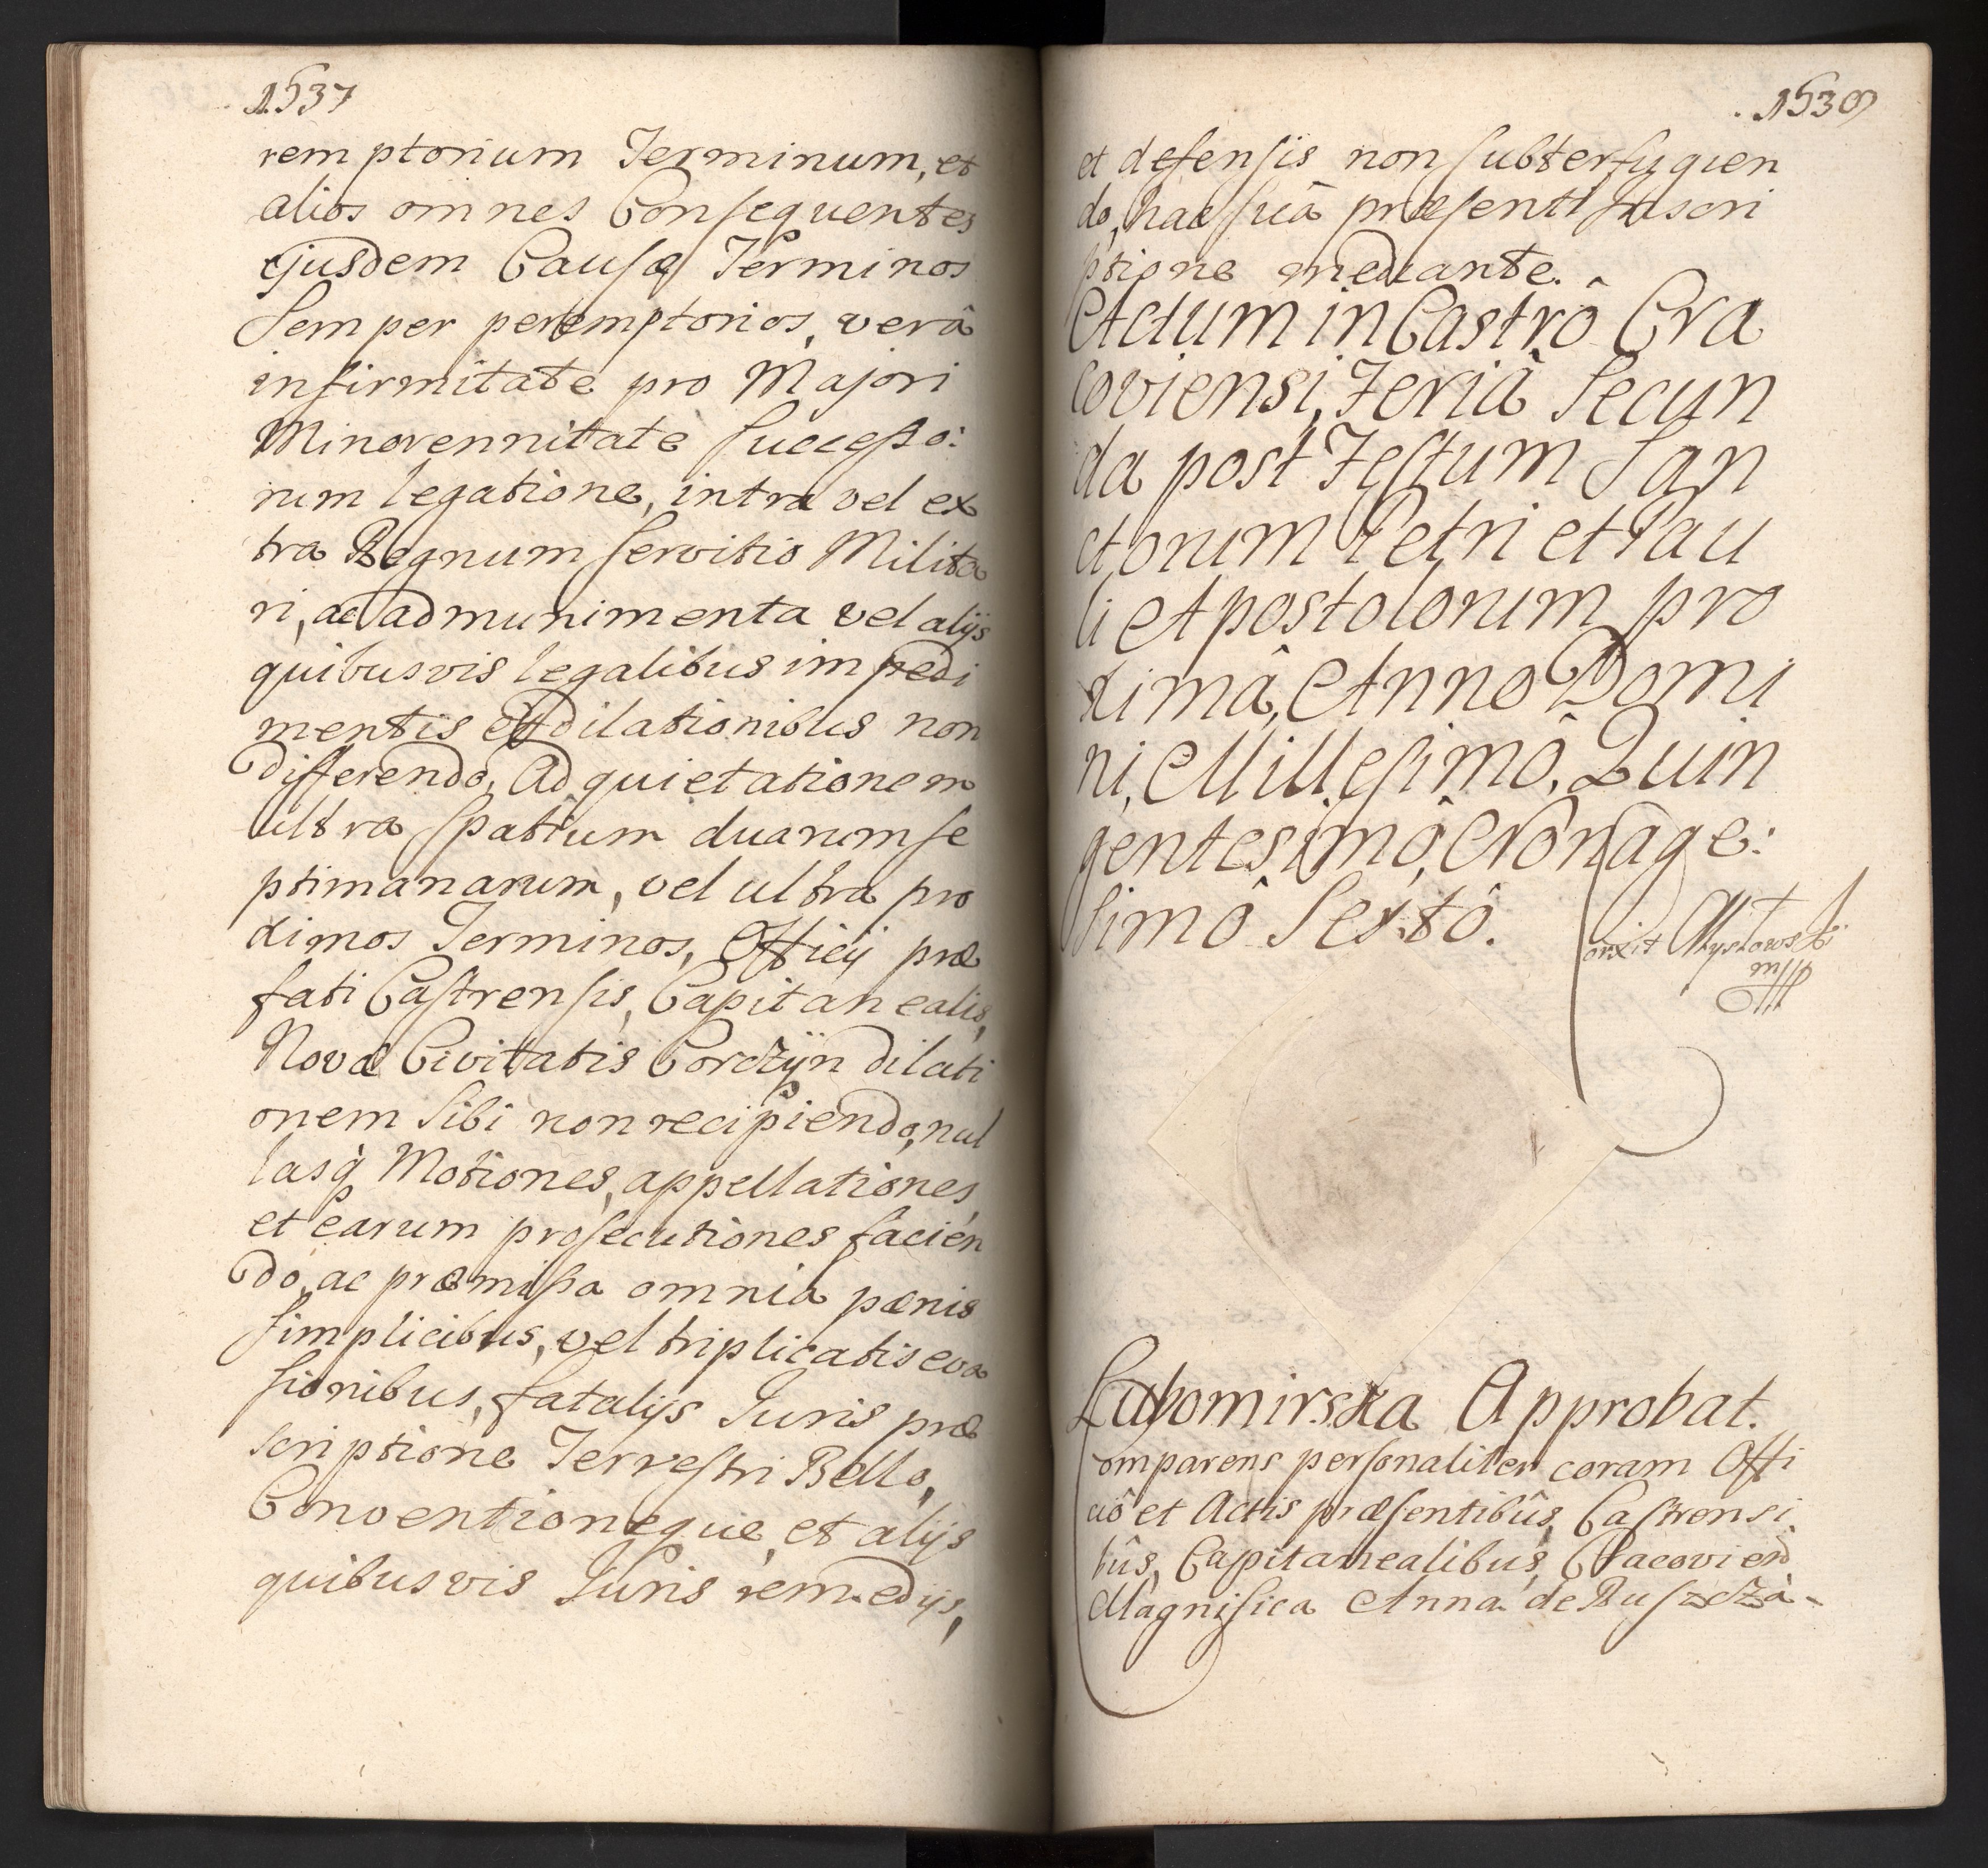 1537
remptorium Terminum, et
alios omnes Consequentes
ejusdem Causæ Terminos
Semper peremptorios, verâ
infirmitate pro Majori
Minorennitate Successo:
rum legatione, intra vel ex
tra Regnum servitio Milita
ri, ac ad munimenta vel alijs
quibusvis legalibus impedi
mentis et dilationibus non
differendo, Ad quietationem
ultra spatium duarum se
ptimanarum, vel ultra pro
ximos Terminos, Officij præ
fati Castrensis, Capitanealis,
Novæ Civitatis Corczÿn dilati
onem Sibi non recipiendo, nul
lasq̀ Motiones, appellationes,
et earum prosecutiones facien
do, ac præmissa omnia pænis
simplicibus, vel triplicatis eva
sionibus, fatalijs Juris præ
scriptione Terrestri Bello,
Conventioneque, et alijs
quibusvis Juris remedijs,
1538
et defensis non subterfugien
do, hac suâ præsenti Inscri
ptione mediante.
Actum in Castrô Cra
coviensi, Feriâ Secun
da post Festum San
ctorum Petri et Pau
li Apostolorum pro
ximâ, Anno Domi
ni, Millesimô, Quin
gentesimô, Nonage:
simô Sextô.
mpp
Lubomirska Approbat.
Comparens personaliter coram Offi
ciô et Actis præsentibûs, Castrensi
bûs, Capitanealibus, Cracovien
Magnifica Anna de Ruszczà-